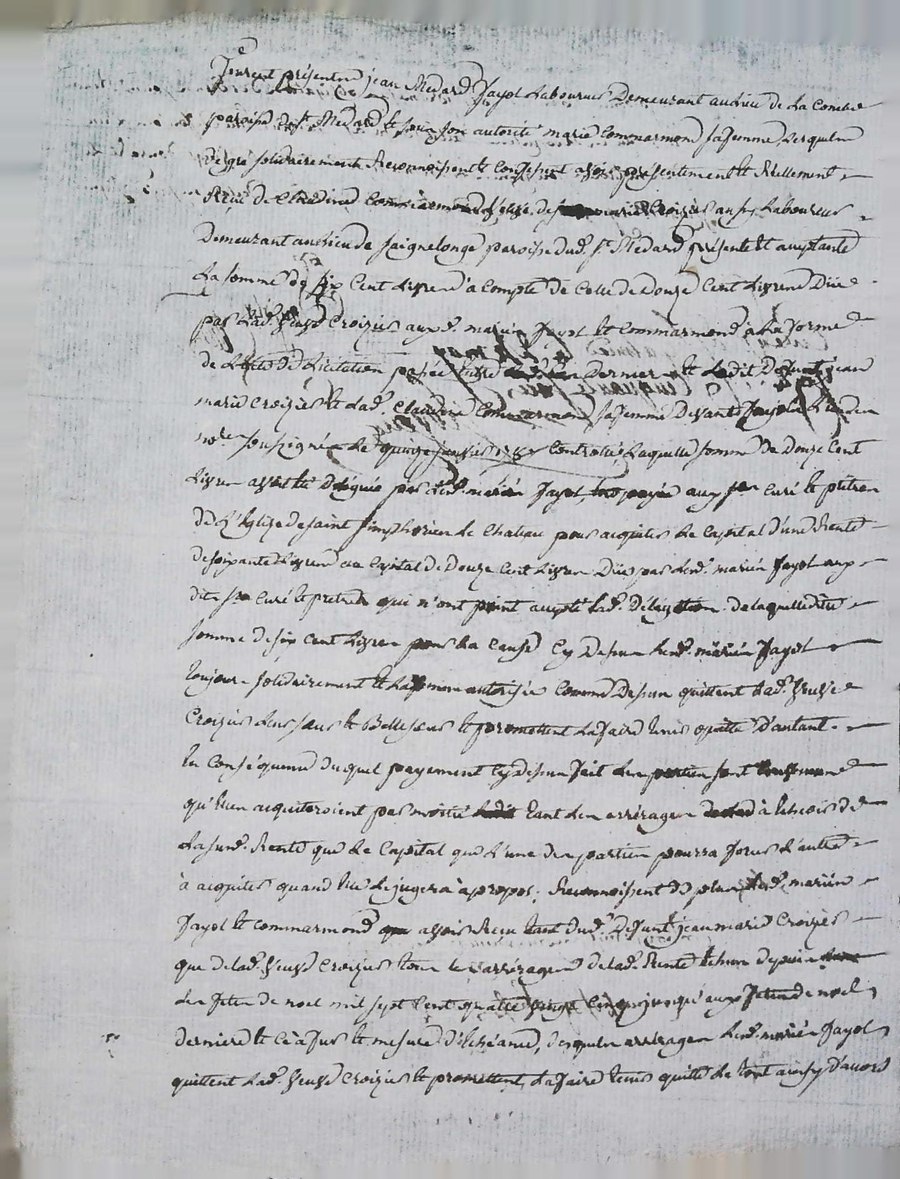 furent présents jean Medard Jayol Laboureur Demeurant au Lieu de La Combe
paroisse de st Medard et sous son autorité marie Commarmond sa femme Lesquels
de gré solidairement Reconnoissent et Confessent avoir présentement et Réellement
Reçu de Claudine Commarmond veuve de jean marie Croizier aussy Laboureur
Demeurant au Lieu de Saignelonge paroisse dud. st. Medard présente et acceptante
La somme de six Cent Livres à Compte de Celle de Douze Cent Livres Düe
par Lad. veuve Croizier auxd. mariés Jayol et Commarmond à La forme
de L'acte de Licitation passée entre Ledit Defunt jean
marie Croizier et Lad. Claudine Commarmond sa femme Devant
nore soussigné Le quinze janvier Controllé, Laquelle somme de Douze Cent
Livres avoit été Déléguée par Lesd. mariés Jayol, aux srs Curé et prêtres
de L'Eglise de saint simphorien Le Chateau pour acquiter Le Capital d'une Rente
de soixante Livres au Capital de Douze Cent Livres Düe par Lesd. mariés Jayol aux
dits srs Curé et prêtres qui n'ont point accepté Lad. Délégation. de laquelle dite
somme de six Cent Livres pour La Cause Cy Dessus Lesd. mariés Jayol
toujours solidairement et La femme autorisée Comme Dessus quittent Lad. veuve
Croizier Leur sœur et Bellesœur et promettent La faire tenir quitte D'autant.
En Conséquence duquel payement Cy Dessus fait Les parties sont
qu'elles acquiteroient par moitié tant Les arrérages à Echeoir de
La susd. Rente que Le Capital que L'une des parties pourra forcer L'autre
à acquiter quand Elle Le jugera à propos; Reconnoissent de plus Lesd. mariés
Jayol et Commarmond avoir Reçu tant dud. Defunt jean marie Croizier
que de lad. veuve Croizier tous Les arrérages de lad. Rente Echus depuis
Les fetes de noel mil sept Cent quatre vingt Cinq jusqu'aux fetes de noel
dernier et Ce à fur et mesure d'Echéance, desquels arrérages Lesd. mariés Jayol
quittent Lad. veuve Croizier et promettent La faire tenir quitte Le tout ainsy D'accord